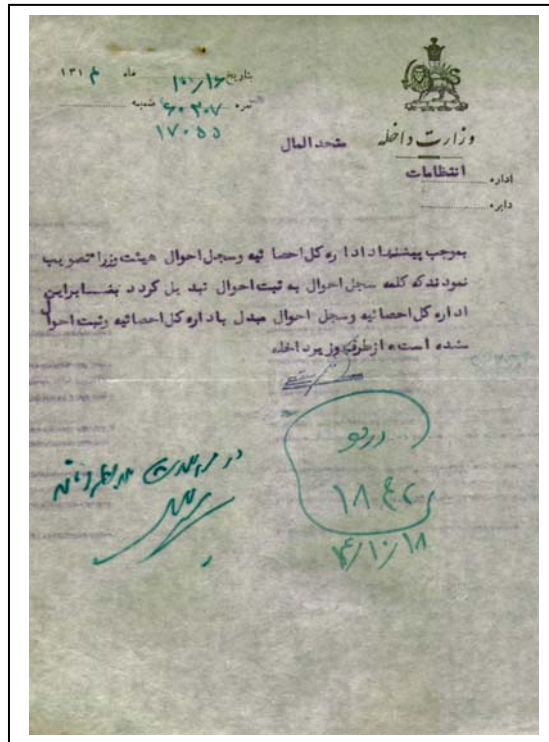 بتاریخ ۱۰/۱۶ ماه ۱۳۱۴
نمره ۶۰۳۰۷ ضمیمه
۱۷۰۵۵
وزارت داخله
متحد المال
اداره انتظامات
دایره
بموجب پیشنهاد اداره کل احصائیه وسجل احوال هیئت وزرا تصویب
نمودند که کلمه سجل احوال به ثبت احوال تبدیل گردد بنابراین
اداره کل احصائیه وسجل احوال مبدل باداره کل احصائیه وثبت احوال
شده است، ازطرف وزیرداخله
۱۴/۱۰/۱۸